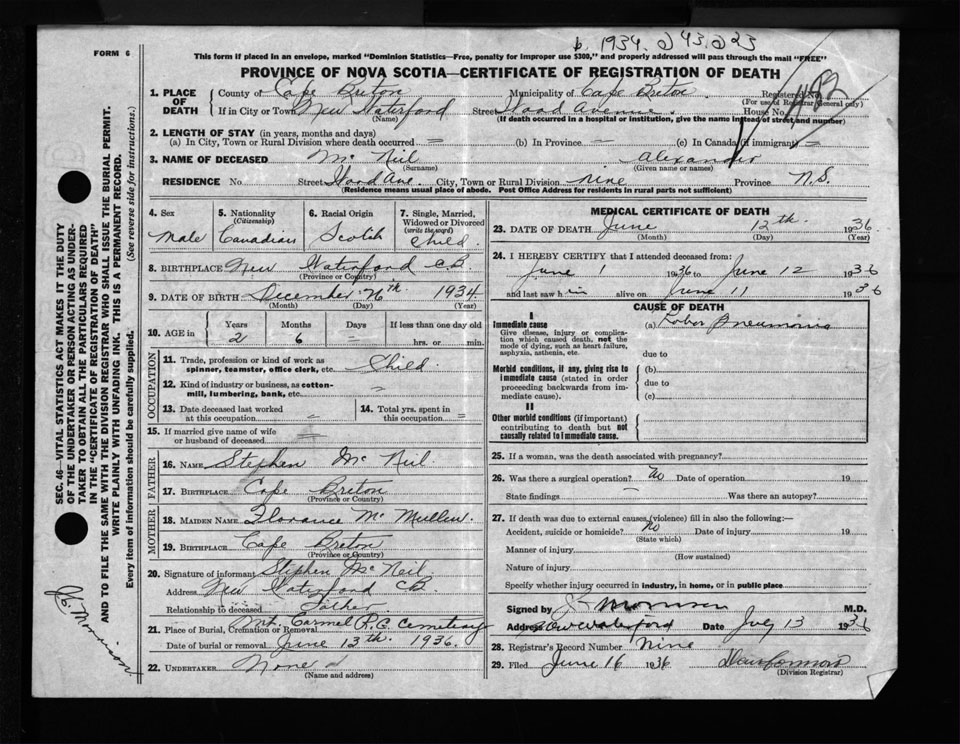 b. 1934. 43. 23
FORM 6
This form if placed in an envelope, marked "Dominion Statistics—Free, penalty for improper use $300," and properly addressed will pass through the mail "FREE"
PROVINCE OF NOVA SCOTIA—CERTIFICATE OF REGISTRATION OF DEATH
1. PLACE OF DEATH
County of Cape Breton Municipality of Cape Breton Registered No.
(For use of Registrar General only)
If in City or Town New Waterford Street Hood Avenue. House No.
(Name) (If death occurred in a hospital or institution, give the name instead of street and number)
2. LENGTH OF STAY (in years, months and days)
(a) In City, Town or Rural Division where death occurred = (b) In Province = (c) In Canada (if immigrant) =
3. NAME OF DECEASED Mc Neil Alexander
(Surname) (Given name or names)
RESIDENCE No. Street Hood Ave. City, Town or Rural Division nine Province N.S.
(Residence means usual place of abode. Post Office Address for residents in rural parts not sufficient)
4. Sex
Male
5. Nationality
(Citizenship)
Canadian
6. Racial Origin
Scotch
7. Single, Married, Widowed or Divorced
(write the word)
Child.
8. BIRTHPLACE New Waterford C.B.
(Province or Country)
9. DATE OF BIRTH December 1934.
(Month) (Day) (Year)
10. AGE in
Years Months Days If less than one day old
2 6 = hrs. or min.
OCCUPATION
11. Trade, profession or kind of work as spinner, teamster, office clerk, etc. Child.
12. Kind of industry or business, as cotton-mill, lumbering, bank, etc. =
13. Date deceased last worked at this occupation =
14. Total yrs. spent in this occupation =
15. If married give name of wife or husband of deceased =
FATHER
16. NAME Stephen Mc Neil
17. BIRTHPLACE Cape Breton
(Province or Country)
MOTHER
18. MAIDEN NAME Florance Mc Mullin.
19. BIRTHPLACE Cape Breton
(Province or Country)
20. Signature of informant Stephen Mc Neil
Address New Waterford C.B.
Relationship to deceased Father
21. Place of Burial, Cremation or Removal Mt. Carmel R.C. Cemetery
Date of burial or removal June 13th. 1936.
22. UNDERTAKER None
(Name and address)
MEDICAL CERTIFICATE OF DEATH
23. DATE OF DEATH June 12th. 1936
(Month) (Day) (Year)
24. I HEREBY CERTIFY that I attended deceased from:
June 1 1936 to June 12 1936
and last saw him alive on June 11 1936
CAUSE OF DEATH
I
Immediate cause
Give disease, injury or complication which caused death, not the mode of dying, such as heart failure, asphyxia, asthenia, etc.
(a) Lobar Pneumonia
due to
Morbid conditions, if any, giving rise to immediate cause (stated in order proceeding backwards from immediate cause).
(b)
due to
(c)
II
Other morbid conditions (if important) contributing to death but not causally related to immediate cause.
25. If a woman, was the death associated with pregnancy?
26. Was there a surgical operation? No Date of operation 19
State findings Was there an autopsy?
27. If death was due to external causes (violence) fill in also the following:—
Accident, suicide or homicide? No Date of injury 19
(State which)
Manner of injury
(How sustained)
Nature of injury
Specify whether injury occurred in industry, in home, or in public place
Signed by J. Morrison M.D.
Address New Waterford Date July 13 1936
28. Registrar's Record Number Nine
29. Filed June 16 1936
(Division Registrar)
SEC. 46—VITAL STATISTICS ACT MAKES IT THE DUTY
OF THE UNDERTAKER OR PERSON ACTING AS UNDER-
TAKER TO OBTAIN ALL THE PARTICULARS REQUIRED
IN THE "CERTIFICATE OF REGISTRATION OF DEATH"
AND TO FILE THE SAME WITH THE DIVISION REGISTRAR WHO SHALL ISSUE THE BURIAL PERMIT.
WRITE PLAINLY WITH UNFADING INK. THIS IS A PERMANENT RECORD.
Every item of information should be carefully supplied. (See reverse side for instructions.)
Morrison